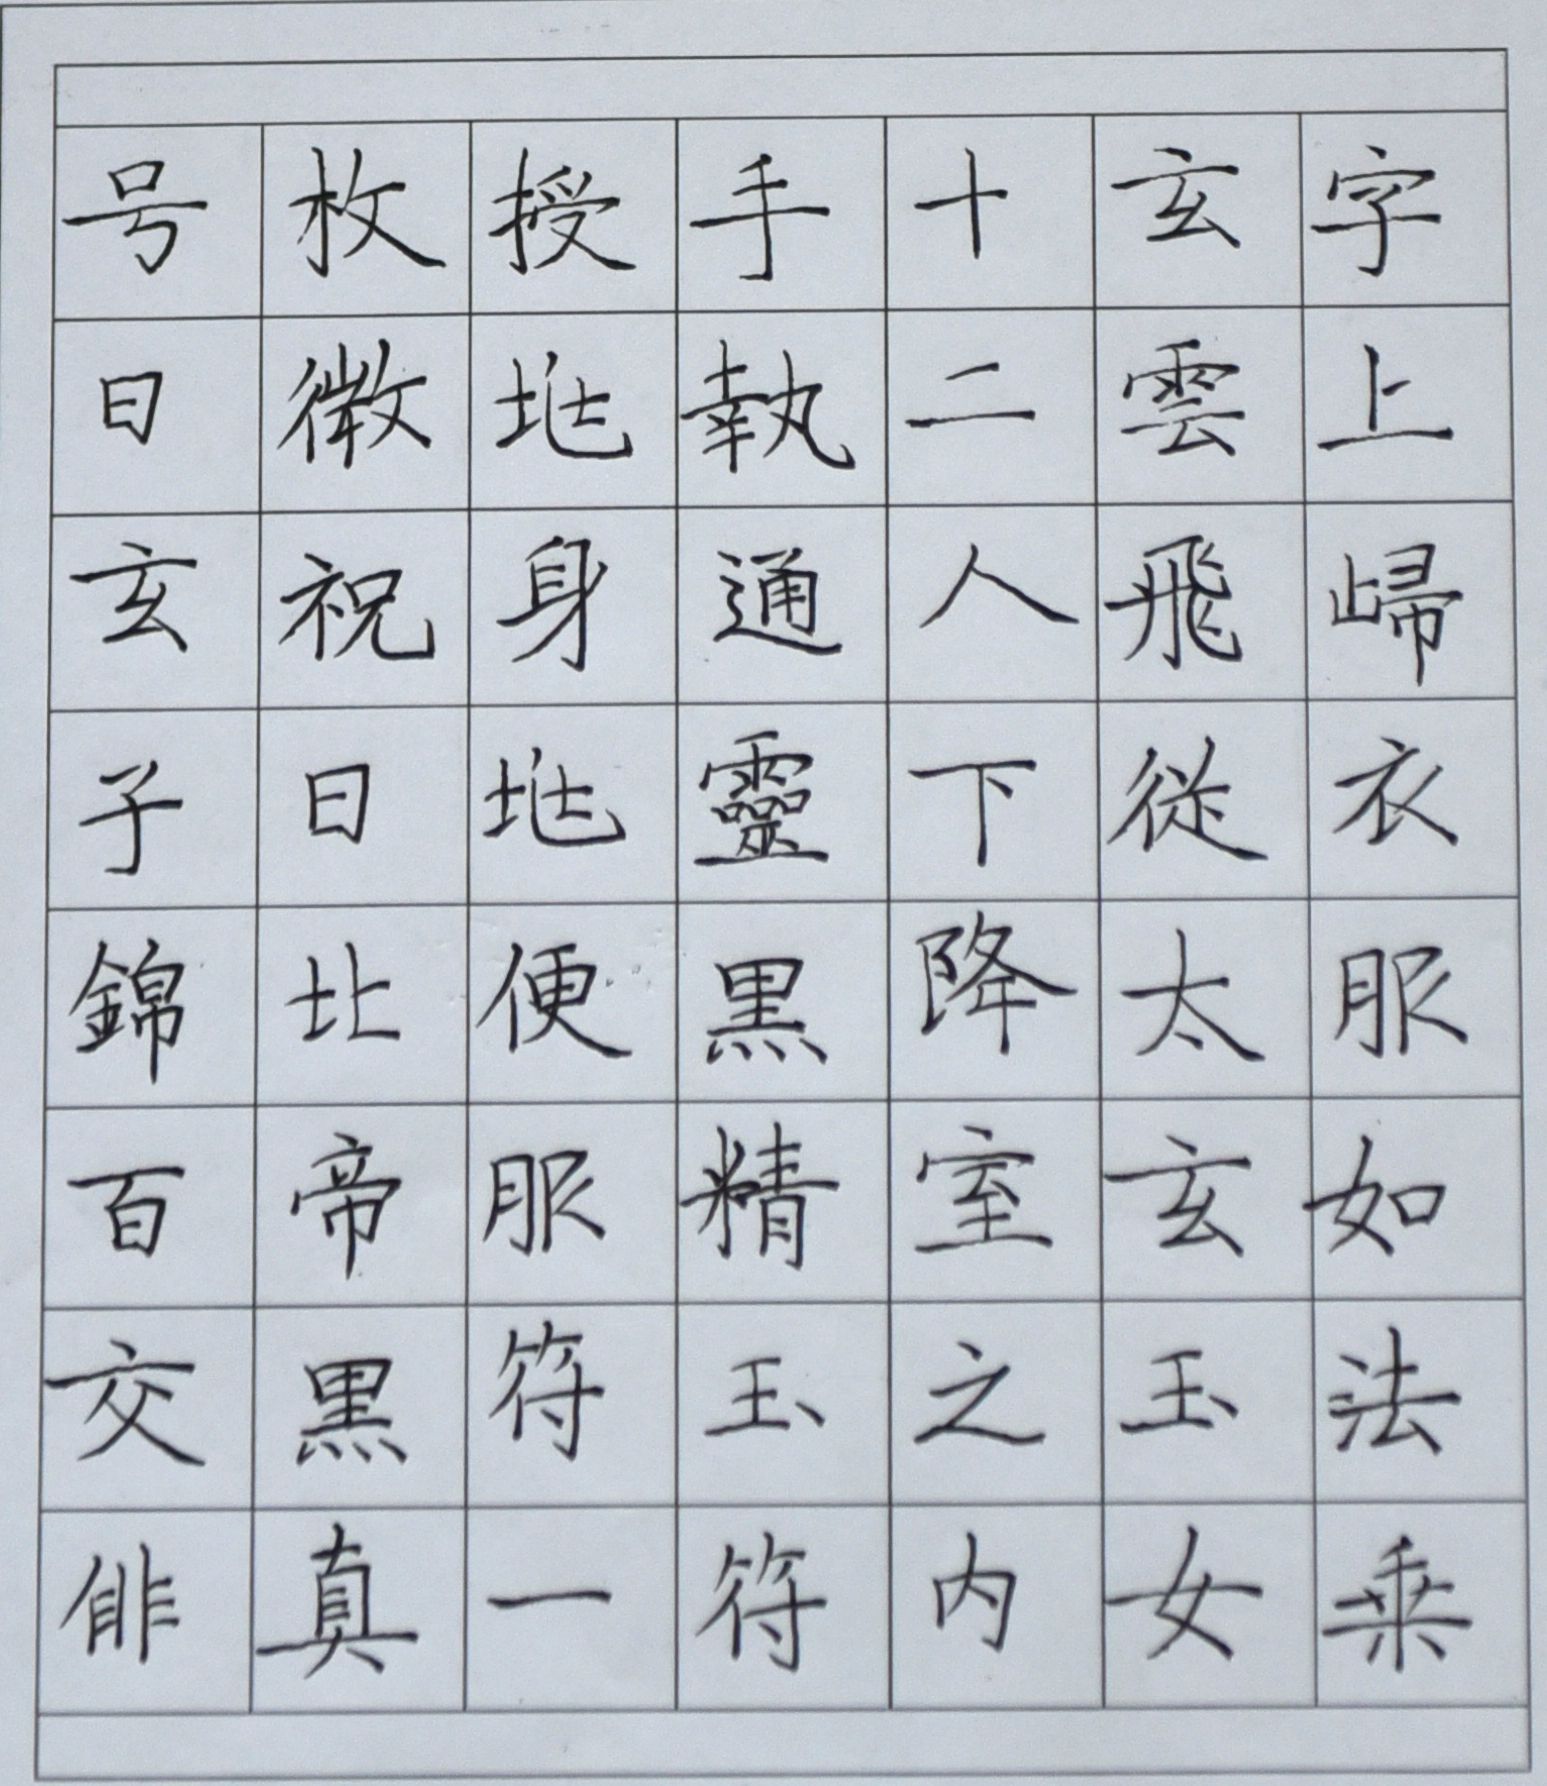 字上歸衣服如法乘
玄雲飛從太玄玉女
十二人下降室之内
手執通靈黑精玉符
授地身地便服符一
枚微祝曰北帝黑真
号曰玄子錦百交俳